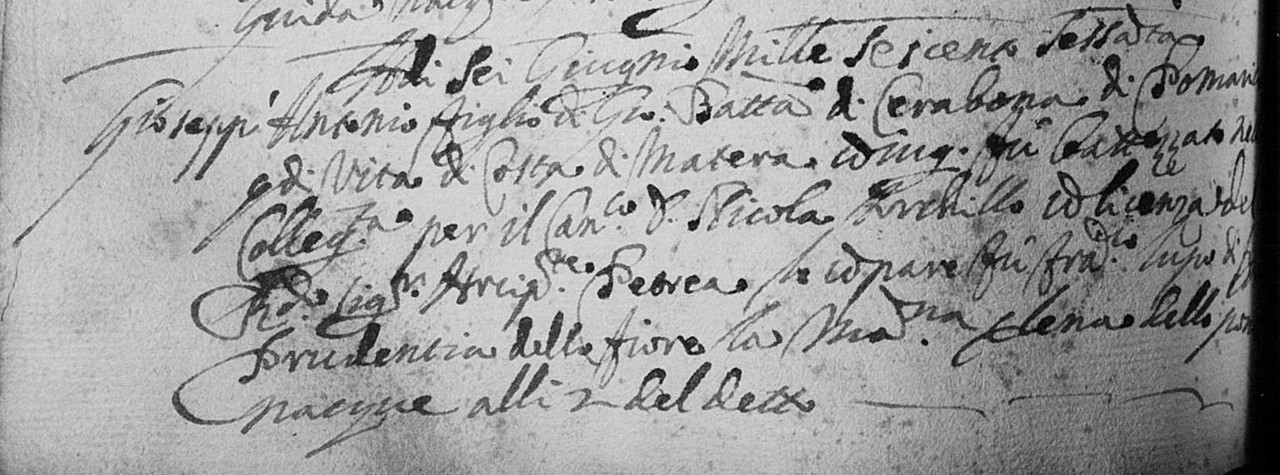 Guida nacq
Adi sei Giugnio Mille seicento sessãta
Gioseppe Antonio figlio di Gio: Batta di Cerabona di Pomari
e di Vita di Costa di Matera cõiug. fù battezzato nel
Colleg.ta per il Can.co D. Nicola Torchillo cõ licenza del
R.do Sig.r Arcip.te Petrea lo cõpare fù frã.co lupo di
Prudentia dello fiore la Mãna Elena dello pon
nacque alli 2 del detto